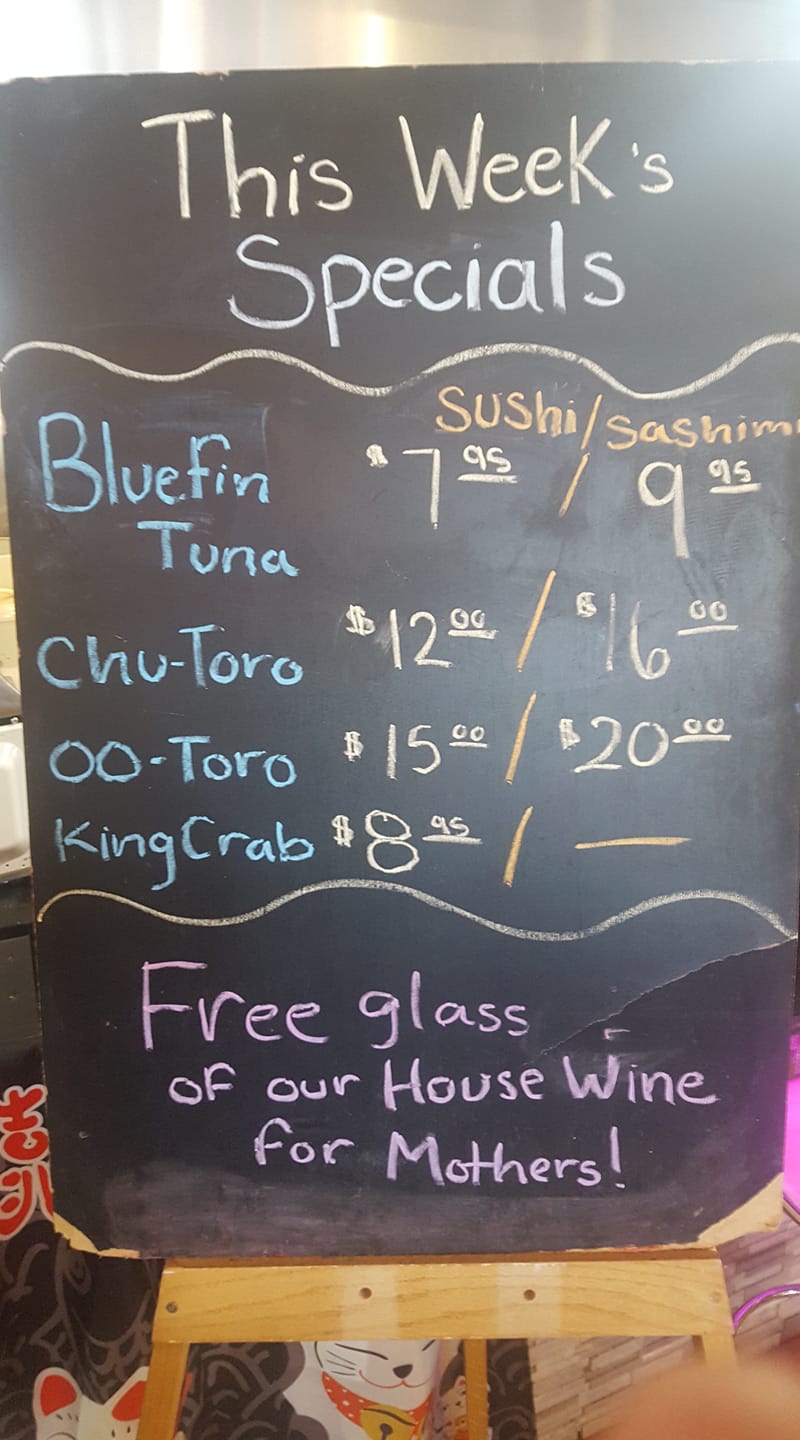 This Week's
Specials
Sushi/Sashimi
Bluefin $7 95 / 9 95
Tuna
Chu-Toro $12 00 / $16 00
OO-Toro $15 00 / $20 00
King Crab $8 95 / —
Free glass
of our House Wine
for Mothers!